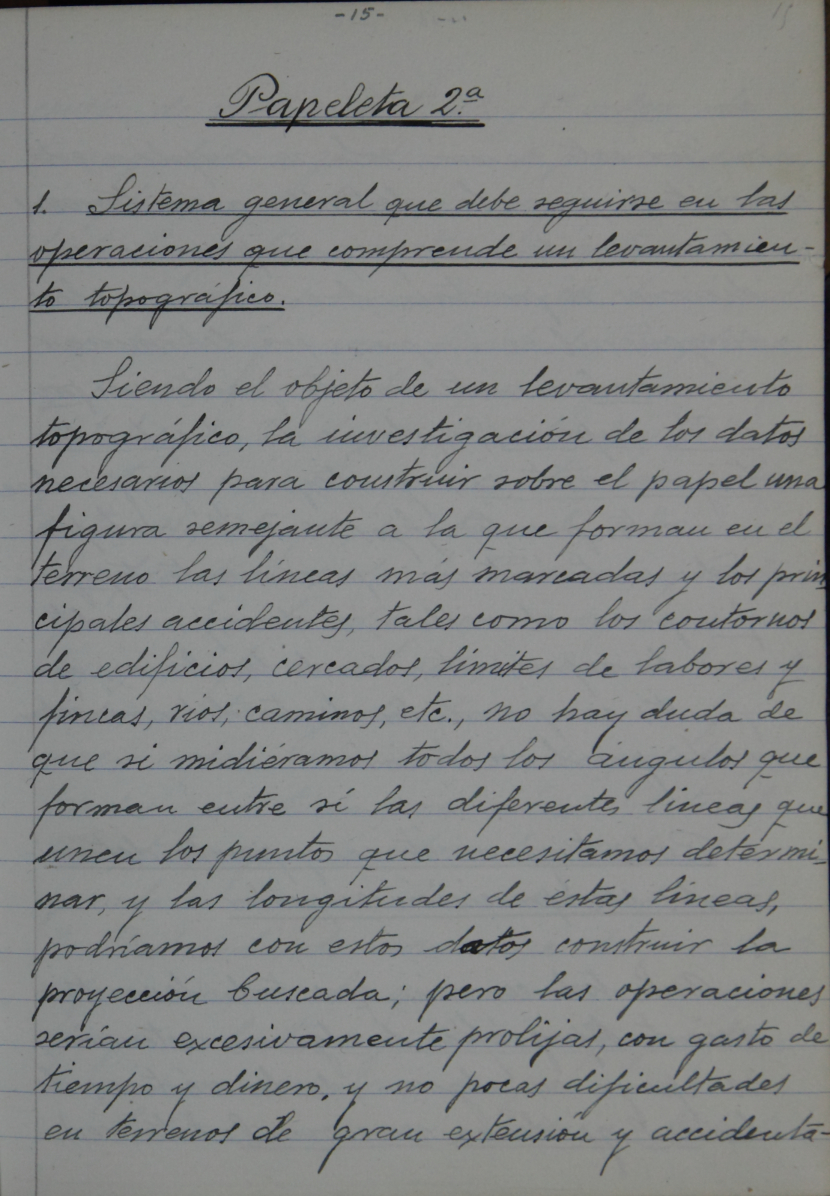 -15-
15
Papeleta 2.ª
1. Sistema general que debe seguirse en las
operaciones que comprende un levantamien-
to topográfico.
Siendo el objeto de un levantamiento
topográfico, la investigación de los datos
necesarios para construir sobre el papel una
figura semejante a la que forman en el
terreno las líneas más marcadas y los prin
cipales accidentes, tales como los contornos
de edificios, cercados, límites de labores y
fincas, rios, caminos, etc., no hay duda de
que si midiéramos todos los ángulos que
forman entre sí las diferentes líneas que
unen los puntos que necesitamos determi-
nar, y las longitudes de éstas líneas,
podríamos con estos datos construir la
proyección buscada; pero las operaciones
serían excesivamente prolijas, con gasto de
tiempo y dinero, y no pocas dificultades
en terrenos de gran extensión y accidenta-